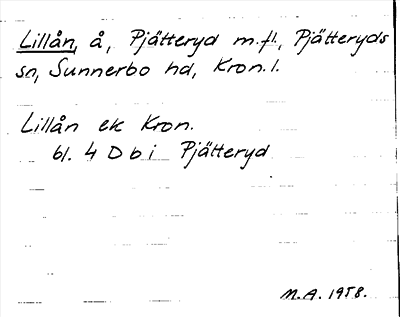 Lillån, å, Pjätteryd m.fl., Pjätteryds
sn, Sunnerbo hd, Kron. l.
Lillån ek Kron.
bl. 4 D b i Pjätteryd
M.A. 1958.